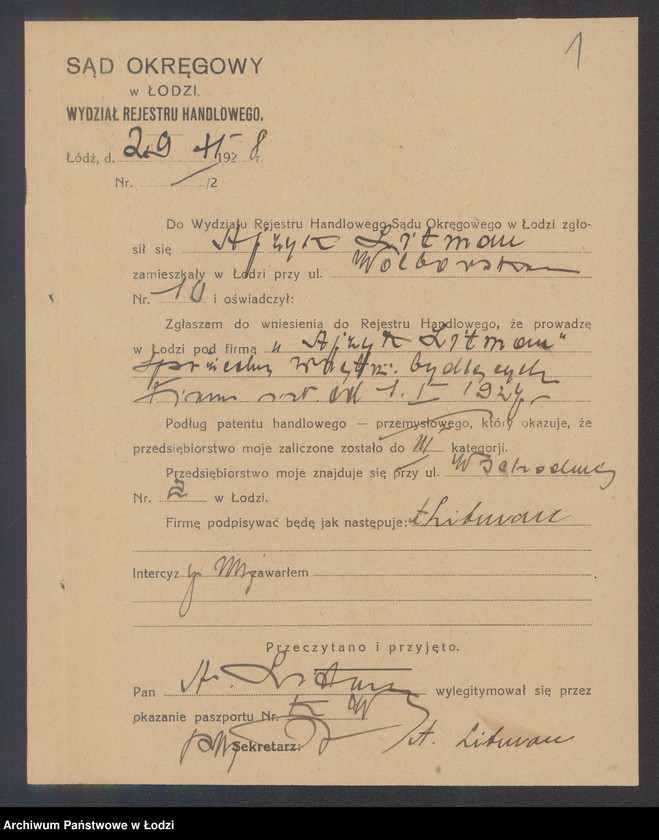 1
SĄD OKRĘGOWY
w ŁODZI.
WYDZIAŁ REJESTRU HANDLOWEGO.
Łódź, d. 29 XI 1928 r.
Nr. /2
Do Wydziału Rejestru Handlowego Sądu Okręgowego w Łodzi zgło-
sił się Ajzyk Litman
zamieszkały w Łodzi przy ul. Wolborska
Nr. 10 i oświadczył:
Zgłaszam do wniesienia do Rejestru Handlowego, że prowadzę
w Łodzi pod firmą „Ajzyk Litman"
bydlęcych
Firma od 1. I 1927
Podług patentu handlowego — przemysłowego, który okazuje, że
przedsiębiorstwo moje zaliczone zostało do III kategorji.
Przedsiębiorstwo moje znajduje się przy ul. Wschodniej
Nr. 2 w Łodzi.
Firmę podpisywać będę jak następuje: ALitman
Intercyzy nie zawarłem
Przeczytano i przyjęto.
Pan A. Litman wylegitymował się przez
okazanie paszportu Nr.
Sekretarz: A. Litman
Archiwum Państwowe w Łodzi